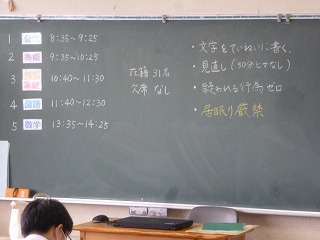 1 8:35〜9:25
2 9:35〜10:25
3 10:40〜11:30
4 国語 11:40〜12:30
5 数学 13:35〜14:25
在籍 31名
欠席 なし
・文字をていねいに書く。
・見直し(50分ヒマなし)
・疑われる行為ゼロ
・居眠り厳禁